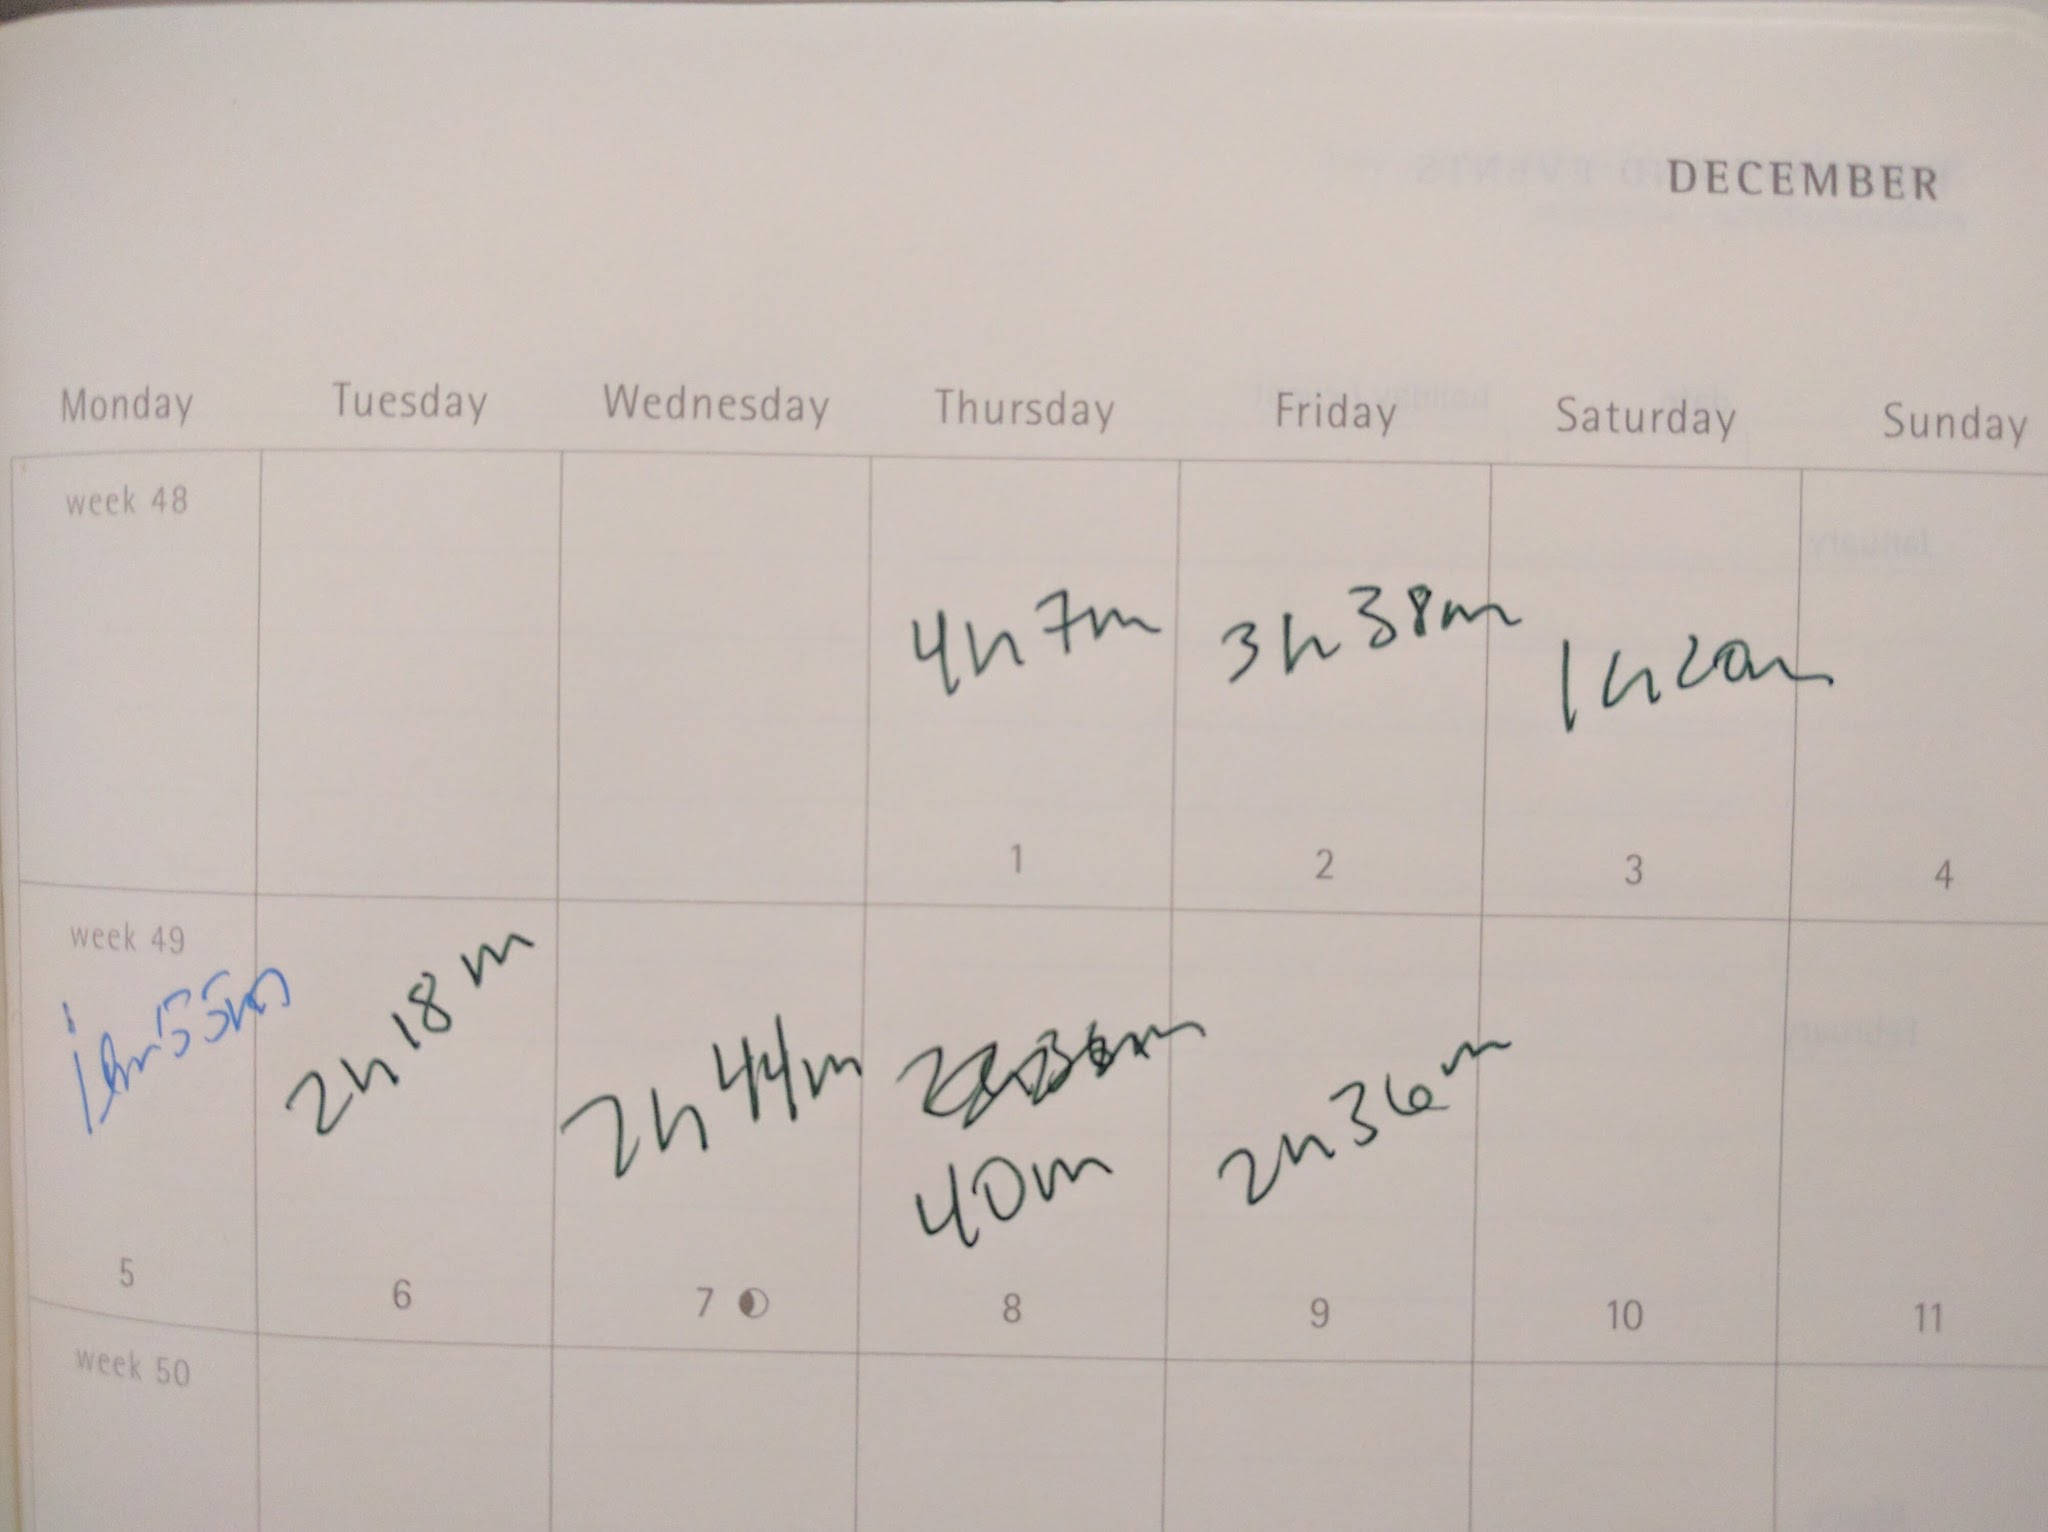 DECEMBER
Monday Tuesday Wednesday Thursday Friday Saturday Sunday
week 48
4h 7m 3h 38m 1h 20m
1 2 3 4
week 49
2h 18m 2h 44m 2h 36m
40m
5 6 7 8 9 10 11
week 50